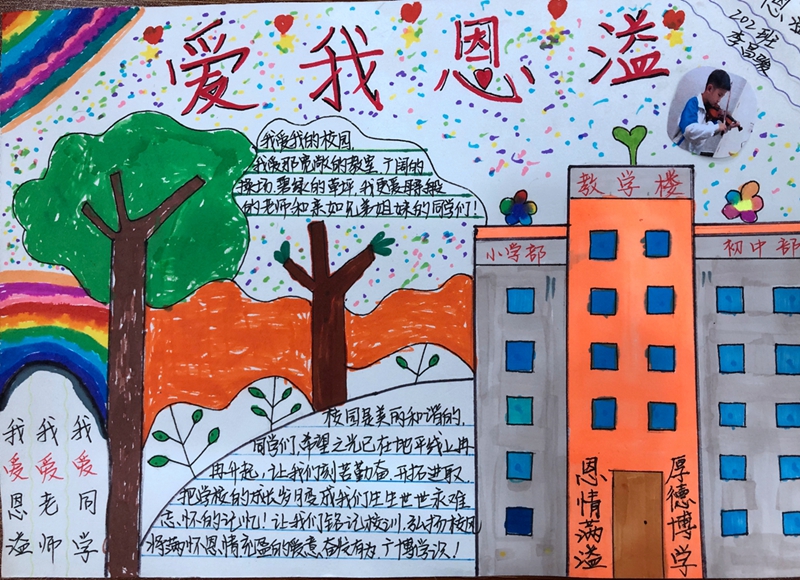 爱我恩溢
恩溢
202班
李昌骏
我爱我的校园,
我爱那宽敞的教室,广阔的
操场,翠绿的草坪,我更爱
的老师和亲如兄弟姐妹的同学们!
教学楼
小学部
初中部
恩情满溢
厚德博学
我爱恩溢
我爱老师
我爱同学
校园是美丽和谐的,
同学们,希望之光已在地平线上冉
冉升起,让我们刻苦勤奋,开拓进取
把学校的成长岁月变成我们生生世世永难
忘怀的记忆!让我们铭记校训,弘扬校风
将满怀恩情充盈的爱意,奋发有为,广博学识!